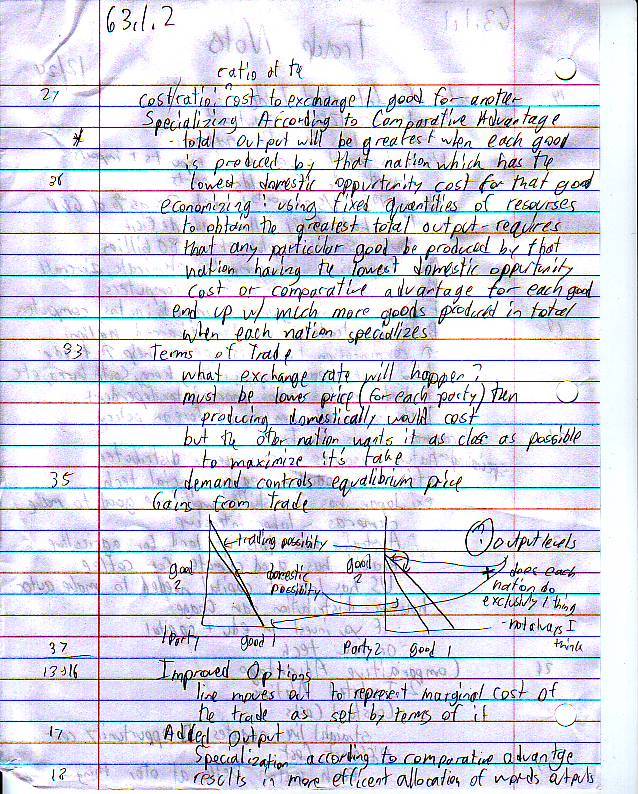 63.1.2
ratio of the
27 cost ratio: cost to exchange 1 good for another
Specializing According to Comparative Advantage
* - total output will be greatest when each good
is produced by that nation which has the
36 lowest domestic oppurtunity cost for that good
economizing: using fixed quantities of resourses
to obtain the greatest total output - requires
that any particular good be produced by that
nation having the lowest domestic opportunity
cost or comparative advantage for each good
end up w/ much more goods produced in total
when each nation specializes
33 Terms of Trade
what exchange rate will happen?
must be lower price (for each party) then
producing domestically would cost
but the other nation wants it as close as possible
to maximize it's take
35 demand controls equalibrium price
Gains from Trade
trading possiblity
output levels
good 2
domestic possiblity
good 2
does each
nation do
exclusivly 1 thing
- not always I
think
1 Party good 1 Party 2 good 1
37
13→16 Improved Options
line moves out to represent marginal cost of
the trade as set by terms of it
17 Added Output
Specialization according to comparative advantge
18 results in more efficent allocation of words outputs